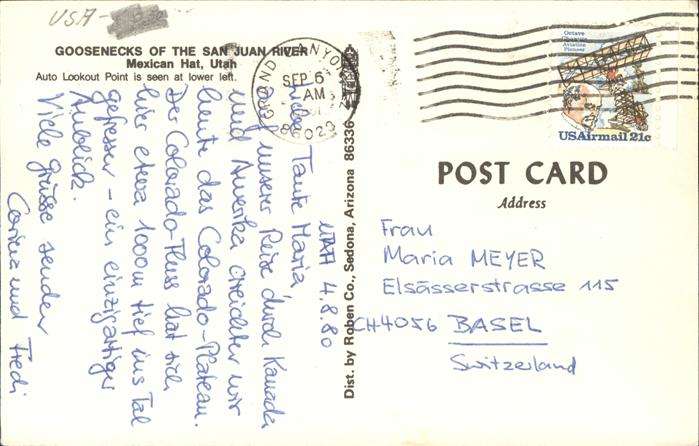 USA -
GOOSENECKS OF THE SAN JUAN RIVER
Mexican Hat, Utah
Auto Lookout Point is seen at lower left.
UTAH 4.8.80
Liebe Tante Maria
Auf unserer Reise durch Kanada
und Amerika erreichten wir
heute das Colorado-Plateau.
Der Colorado-Fluss hat sich
hier etwa 1000m tief ins Tal
gefressen - ein einzigartiger
Anblick.
Viele Grüsse senden
Corina und Fredi
Dist. by Roben Co., Sedona, Arizona 86336
GRAND CANYON
SEP 6
AM
86023
Octave
Chanute
Aviation
Pioneer
USAirmail 21c
POST CARD
Address
Frau
Maria MEYER
Elsässerstrasse 115
CH4056 BASEL
Switzerland